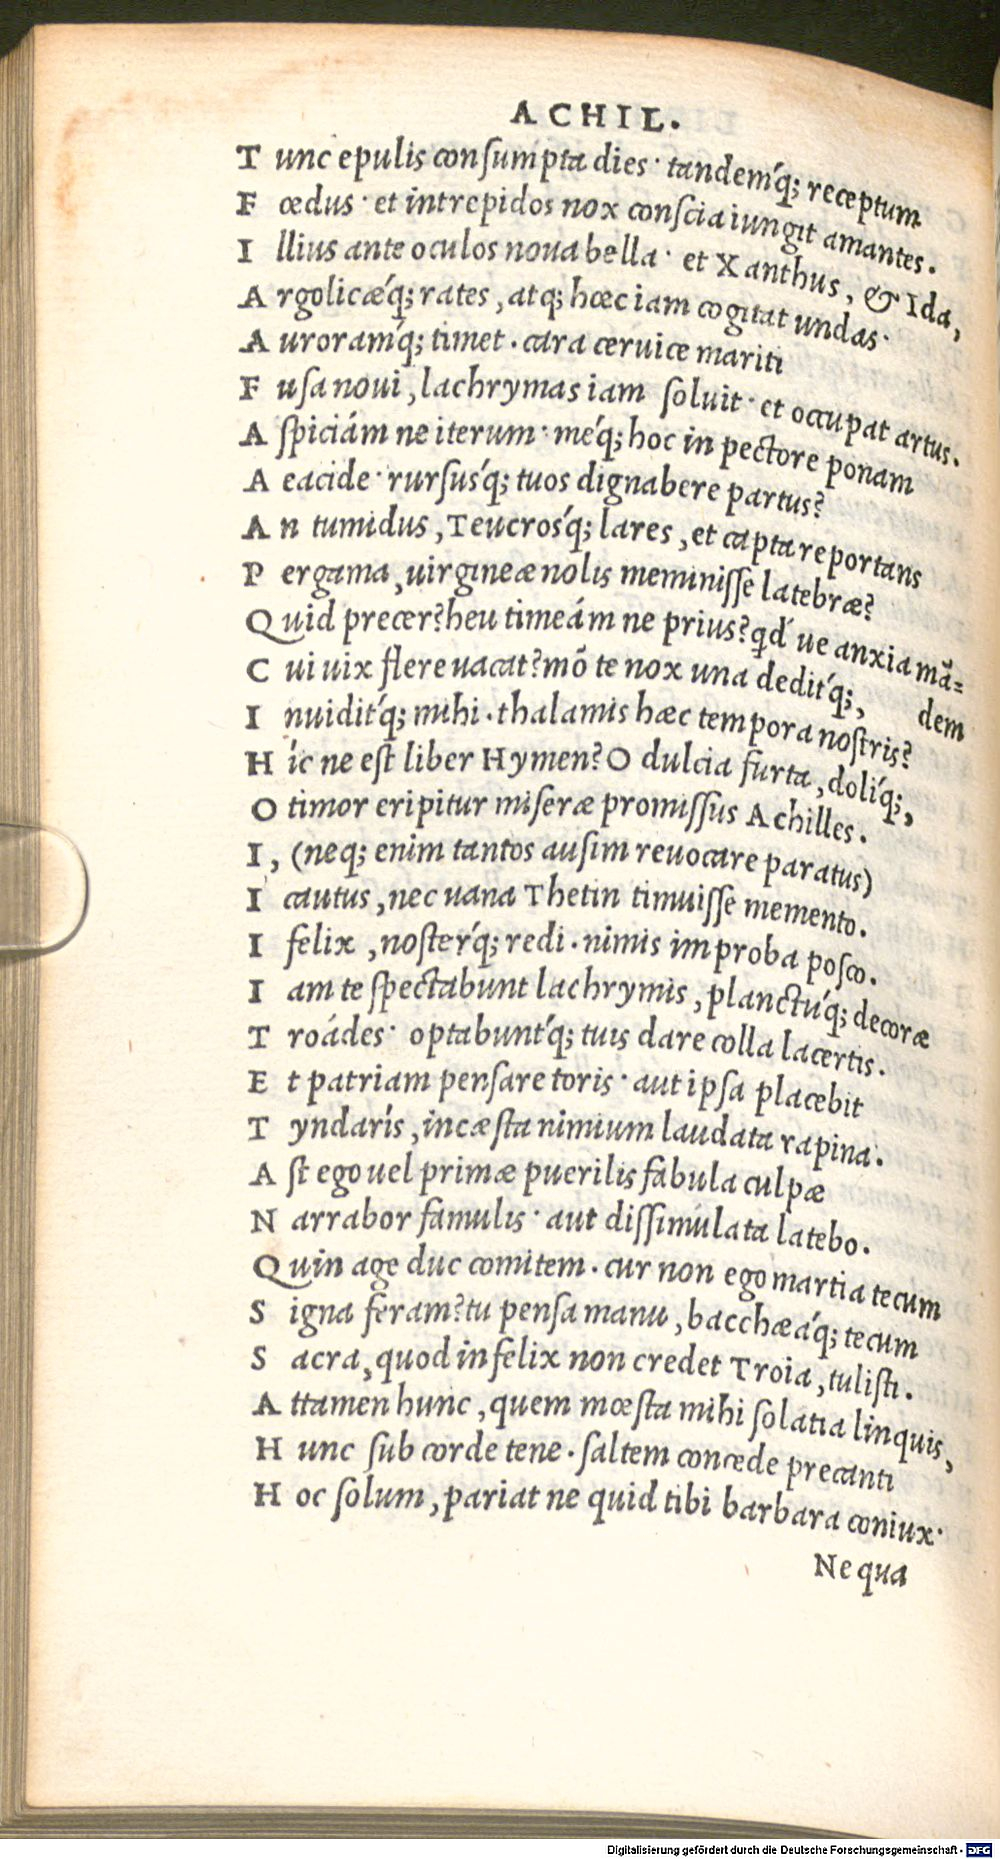 ACHIL.
T unc epulis conſumpta dies· tandemq́; receptum
F œdus· et intrepidos nox conſcia iungit amantes.
I llius ante oculos noua bella· et Xanthus, & Ida,
A rgolicæq́; rates, atq; hæc iam cogitat undas·
A uroramq́; timet. cara ceruice mariti
F uſa noui, lachrymas iam ſoluit· et occupat artus.
A ſpiciám ne iterum· méq́; hoc in pectore ponam
A eacide· rurſusq́; tuos dignabere partus?
A n tumidus, Teucrosq́; lares, et capta reportans
P ergama, uirgineæ nolis meminiſſe latebræ?
Q uid precer? heu timeám ne prius? qd́ ue anxia mã=
C ui uix flere uacat? mõ te nox una deditq́;, dem
I nuiditq́; mihi. thalamis hæc tempora noſtris?
H íc ne eſt liber Hymen? O dulcia furta, doliq́;,
O timor eripitur miſeræ promiſſus Achilles.
I, (neq; enim tantos auſim reuocare paratus)
I cautus, nec uana Thetin timuiſſe memento.
I felix, noſterq́; redi. nimis improba poſco.
I am te ſpectabunt lachrymis, planctuq́; decoræ
T roádes· optabuntq́; tuis dare colla lacertis.
E t patriam penſare toris· aut ipſa placebit
T yndarís, incæſta nimium laudata rapina.
A ſt ego uel primæ puerilis fabula culpæ
N arrabor famulis· aut diſſimulata latebo.
Q uin age duc comitem. cur non ego martia tecum
S igna feram? tu penſa manu, bacchæáq́; tecum
S acra, quod infelix non credet Troia, tuliſti.
A ttamen hunc, quem mœſta mihi ſolatia linquis,
H unc ſub corde tene. ſaltem concede precanti
H oc ſolum, pariat ne quid tibi barbara coniux·
Ne qua
Digitalisierung gefördert durch die Deutsche Forschungsgemeinschaft - DFG